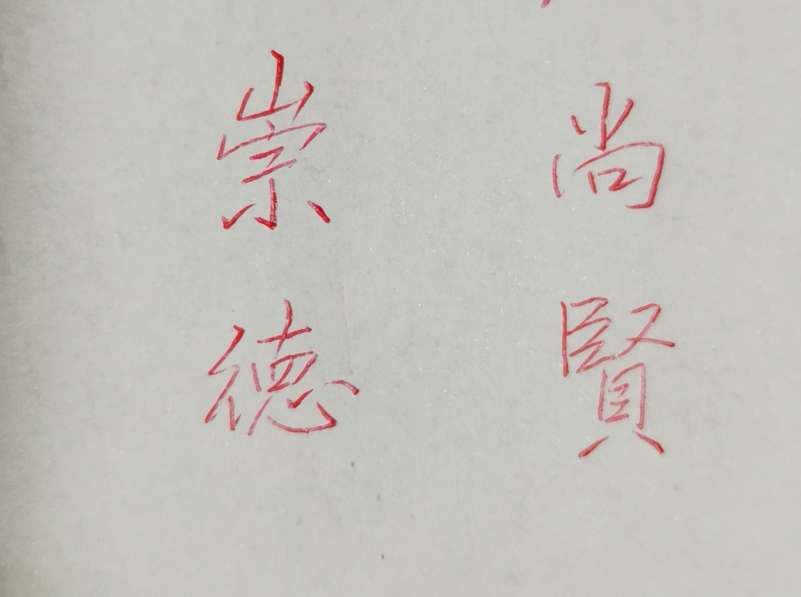 尚賢
崇德